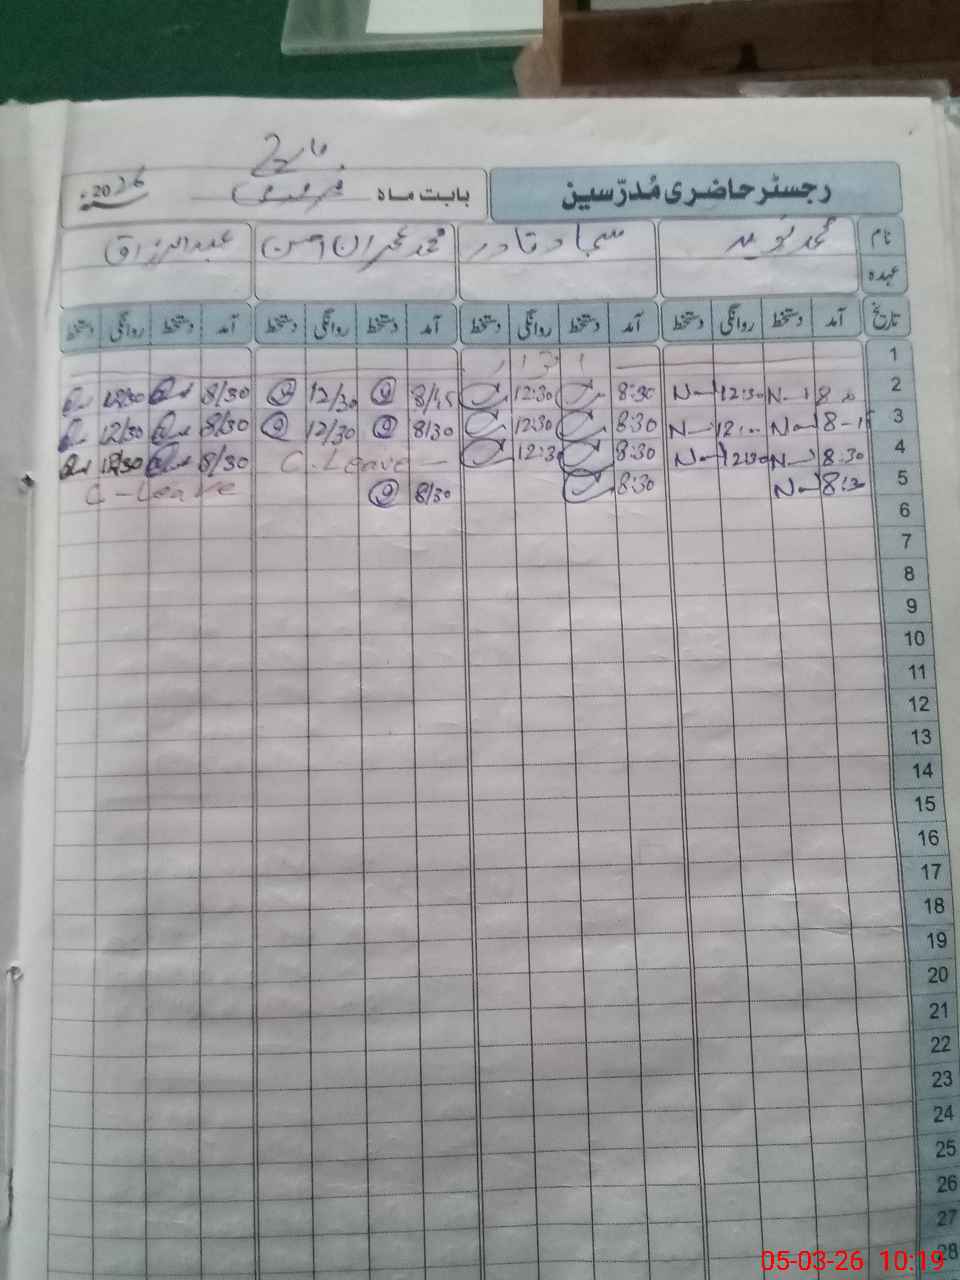 مارچ
رجسٹر حاضری مُدرّسین بابت ماہ 2026ء
نام محمد نوید سجاد قادر محمد عمران حسن عبدالرزاق
عہدہ
تاریخ آمد دستخط روانگی دستخط آمد دستخط روانگی دستخط آمد دستخط روانگی دستخط آمد دستخط روانگی دستخط
1
2 8:30 12:30 8/45 12/30 8/30 12/30
3 8:30 12:30 8/30 12/30 8/30 12/30
4 8:30 12:30 8:30 12:30 C. Leave 8/30 12/30
5 8:30 8:30 8/30 C-Leave
6
7
8
9
10
11
12
13
14
15
16
17
18
19
20
21
22
23
24
25
26
27
28
05-03-26 10:19